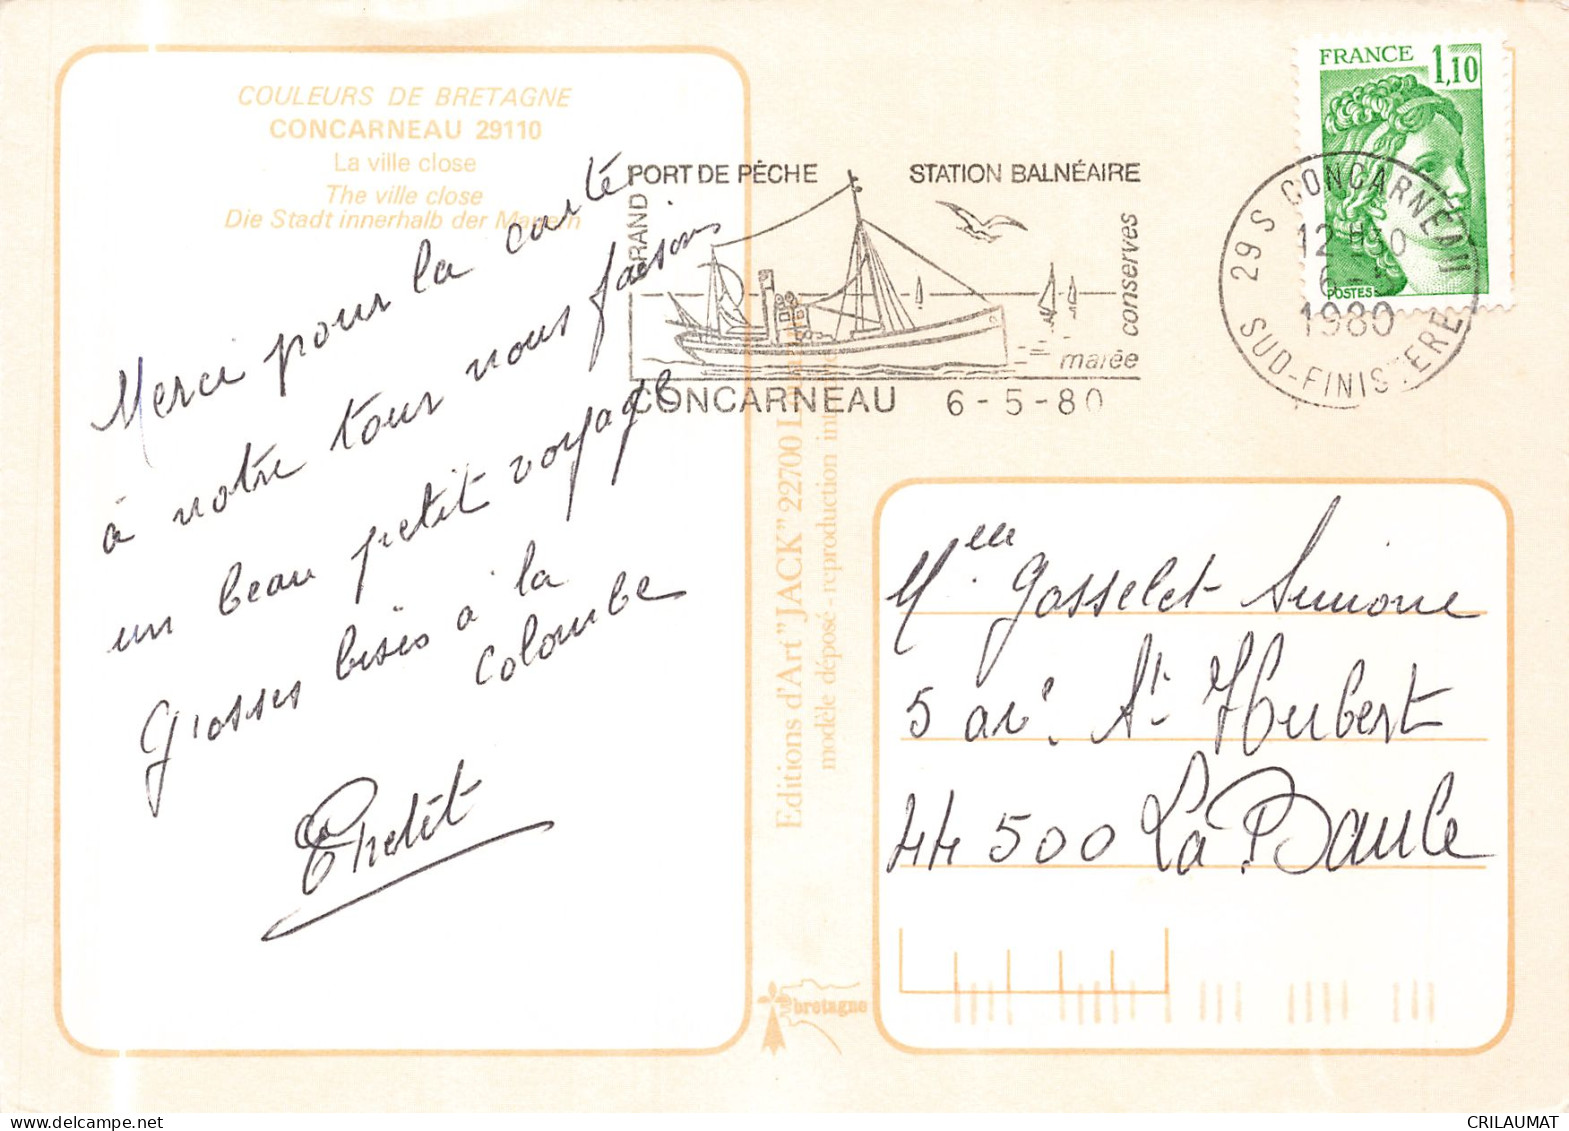 COULEURS DE BRETAGNE
CONCARNEAU 29110
La ville close
The ville close
Die Stadt innerhalb der Mauern
Merci pour la carte
à notre tour nous faisons
un beau petit voyage
Grosses bises à la
Colombe
GRAND PORT DE PÊCHE STATION BALNÉAIRE
conserves
marée
CONCARNEAU 6-5-80
FRANCE 1,10
POSTES
29 S CONCARNEAU
1980
SUD-FINISTERE
Editions d'Art "JACK" 22700
modèle déposé - reproduction
Mlle Gosselet Simone
5 av. St Hubert
44 500 La Baule
bretagne
CRILAUMAT